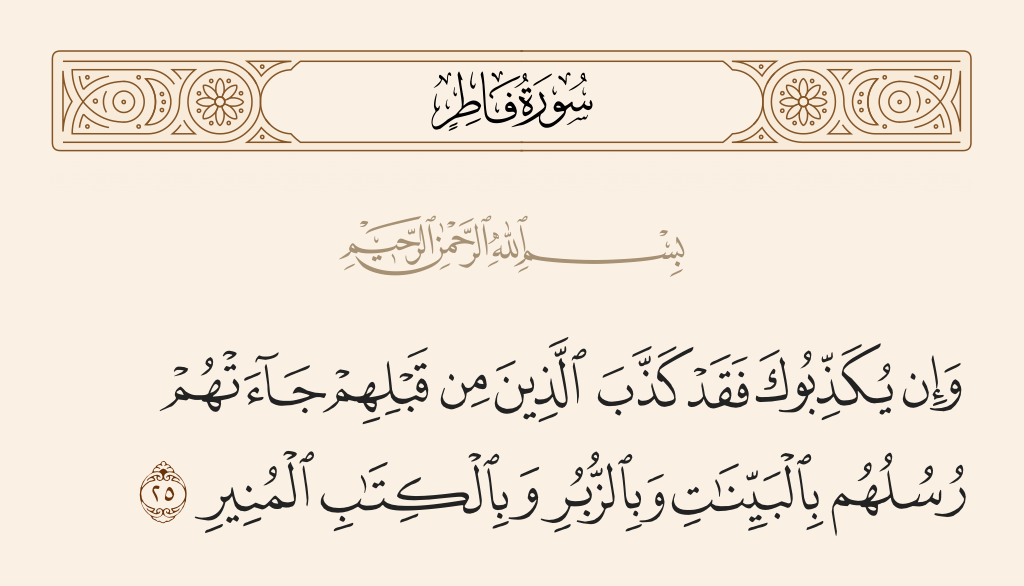 سُورَةُ فَاطِرٍ
بِسْمِ ٱللَّهِ ٱلرَّحْمَٰنِ ٱلرَّحِيمِ
وَإِن يُكَذِّبُوكَ فَقَدْ كَذَّبَ ٱلَّذِينَ مِن قَبْلِهِمْ جَآءَتْهُمْ
رُسُلُهُم بِٱلْبَيِّنَٰتِ وَبِٱلزُّبُرِ وَبِٱلْكِتَٰبِ ٱلْمُنِيرِ ٢٥